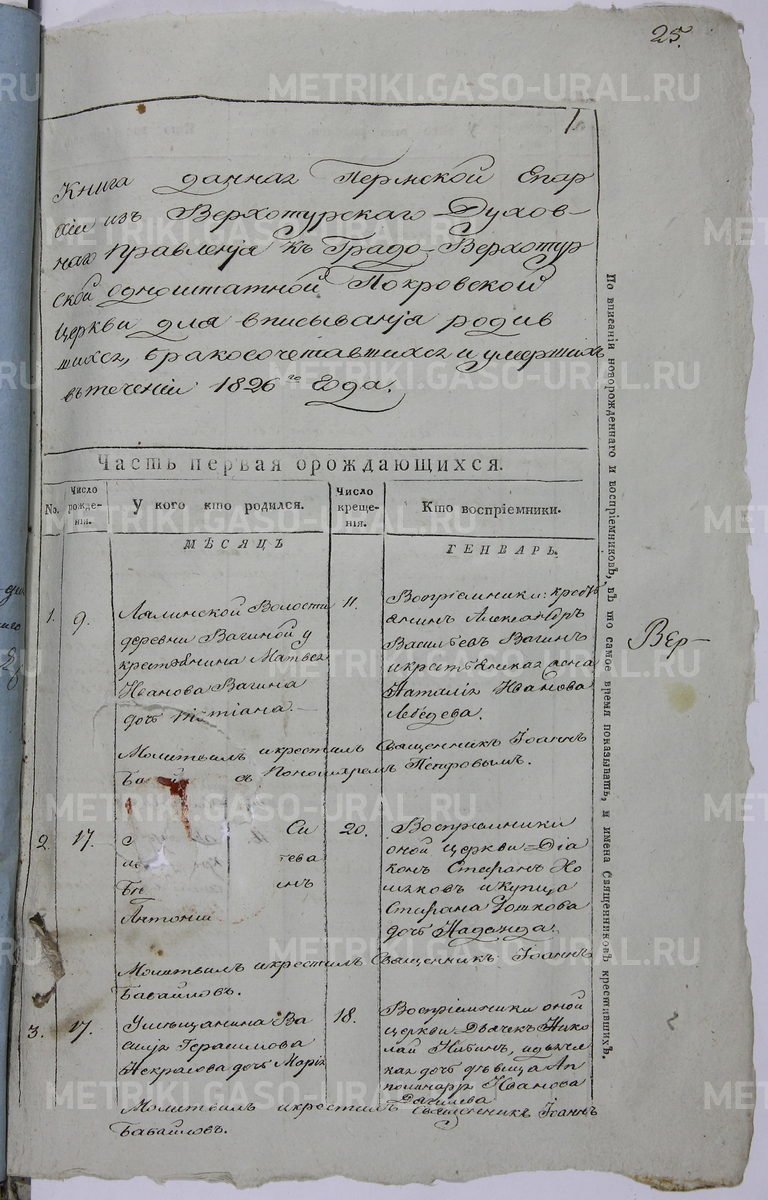 25.
1
Книга данная Пермской Епар
хіи изъ Верхотурскаго Духов-
наго Правленія къ Градо-Верхотур
ской одноштатной Покровской
Церкви для вписыванія родив
шихся, бракосочетавшихся и умершихъ
въ теченіи 1826го года.
Часть первая орождающихся.
No. Число рожде-нія. У кого кто родился. Число креще-нія. Кто воспріемники.
МѢСЯЦЪ ГЕНВАРЬ.
1. 9. Лялинской Волости
деревни Вагиной у
крестьянина Матвея
Иванова Вагина
дочь Татіана.
11. Воспріемники: кресть
янинъ Александръ
Васильевъ Вагинъ
и крестьянская жена
Наталія Иванова
Лебедева.
Молитвилъ и крестилъ Священникъ Іоаннъ
Ба съ Пономаремъ Петровымъ.
2. 17. Си
тева
инъ
Антоній
20. Воспріемники
оной церкви Діа
конъ Стефанъ
и купца
Стефана
дочь Надежда
Молитвилъ и крестилъ Священникъ Іоаннъ
Бабаиловъ.
3. 17. У мѣщанина Ва
силія Герасимова
Некрасова дочь Марія
18. Воспріемники оной
церкви Дьячекъ Нико
лай
дочь дѣвица Ап
полинарія Иванова
Молитвилъ и крестилъ Священникъ Іоаннъ
Бабаиловъ.
По вписаніи новорожденнаго и воспріемниковъ, въ то самое время показывать, и имена Священниковъ крестившихъ.
Вер-
METRIKI.GASO-URAL.RU